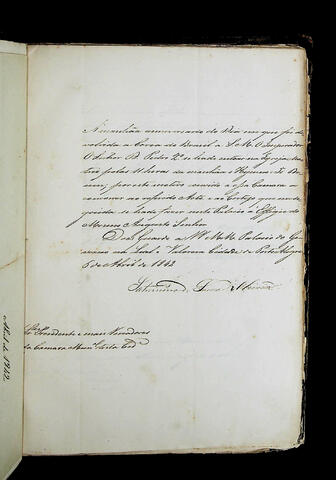 Amanhãa anniversario do Dia em que foi de
volvida a Coroa do Brasil a S. M. O Imperador
O Senhor D. Pedro 2º se ha de entoar na Igreja Ma
triz pelas 11 horas da manhãa o Hymno Te De
um; por este motivo convido a essa Camara a
comparecer ao referido Acto, e ao Cortejo que em se
guida se ha de fazer neste Palacio a Effigie do
Mesmo Augusto Senhor.
Deos Guarde a V.M.ces Palacio do Go
verno na Leal e Valorosa Cidade de Porto Alegre
6 de Abril de 1842
Presidente e mais Vereadores
da Camara Mun.al desta Cid.e
Abril de 1842.